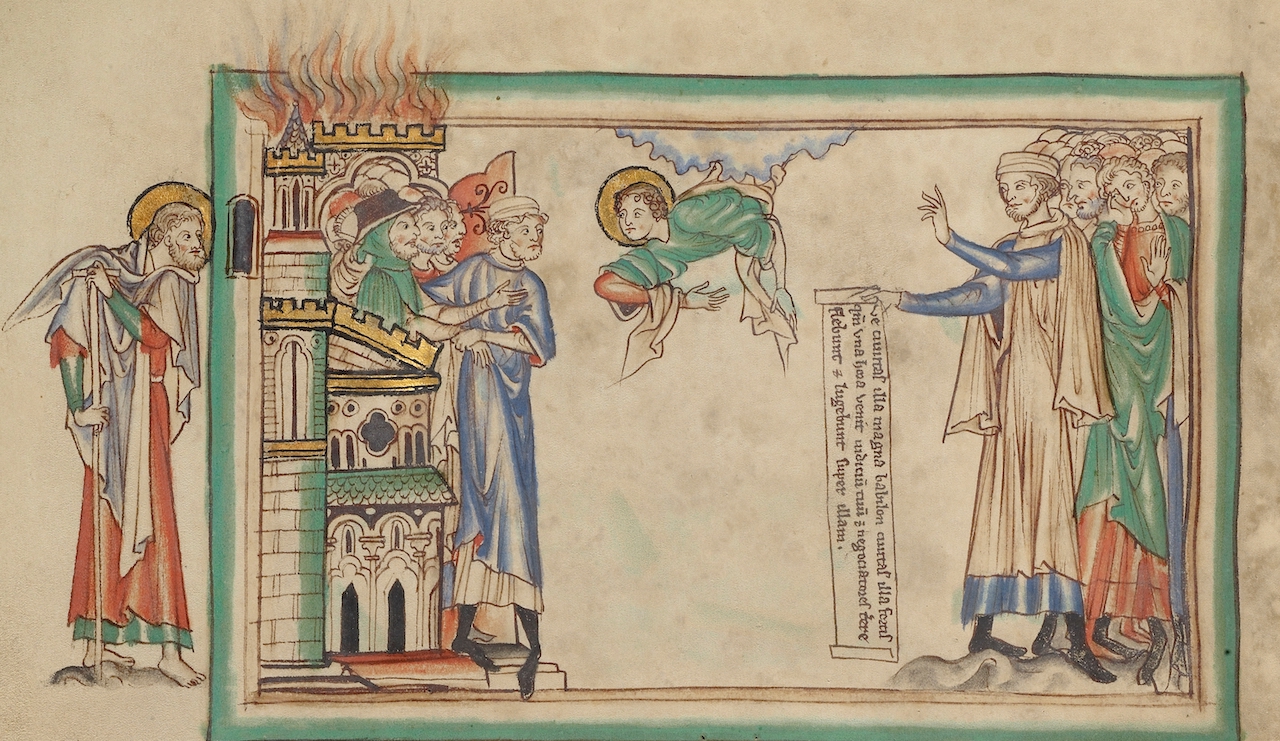 ve ciuitas illa magna babilon ciuitas illa fortis
qm̄ vna hora venit iudiciū tuū ⁊ negociatores t̄re
flebunt ⁊ lugebunt super illam.